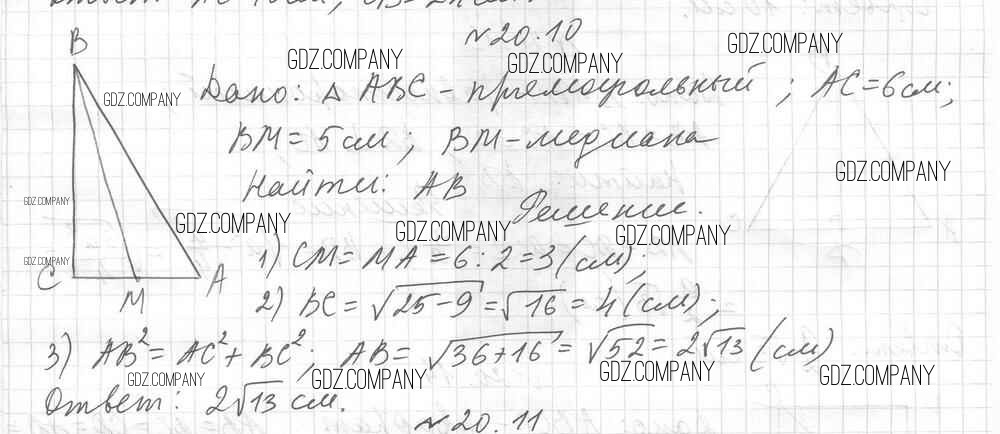 №20.10
Дано: △ ABC - прямоугольный; AC=6см;
BM=5см; BM-медиана
Найти: AB
Решение.
1) CM=MA=6:2=3(см);
2) BC=√25-9=√16=4(см);
3) AB²=AC²+BC²; AB=√36+16=√52=2√13(см)
Ответ: 2√13 см.
№20.11
B
C
M
A
GDZ.COMPANY
GDZ.COMPANY
GDZ.COMPANY
GDZ.COMPANY
GDZ.COMPANY
GDZ.COMPANY
GDZ.COMPANY
GDZ.COMPANY
GDZ.COMPANY
GDZ.COMPANY
GDZ.COMPANY
GDZ.COMPANY
GDZ.COMPANY
GDZ.COMPANY